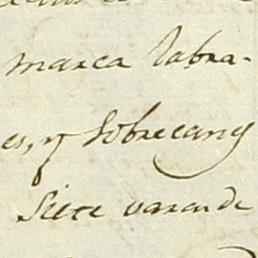 marca labra-
es, y sobrecarg
siete varas de